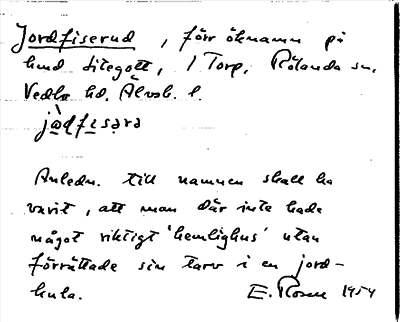 Jordfiserud, förr öknamn på
hmd Sitegott, 1 Torp, Rölanda sn,
Vedbo hd. Älvsb. l.
jòdfisəra
Anledn. till namnen skall ha
varit, att man där inte hade
något riktigt 'hemlighus' utan
förrättade sin tarv i en jord-
kula. E. Rosen 1954